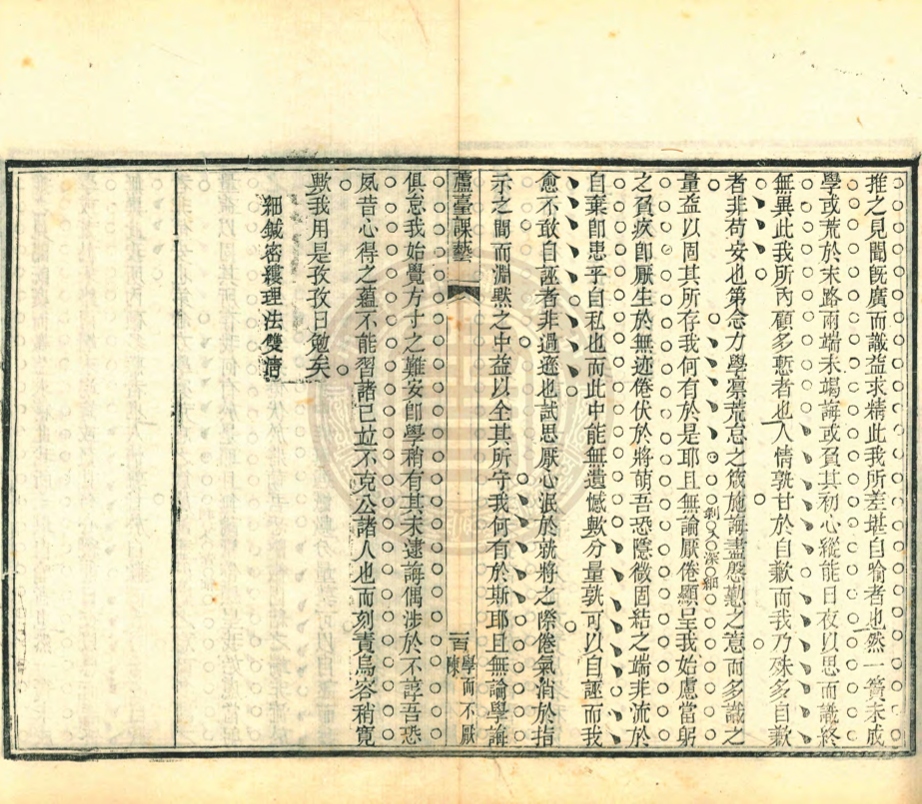 推之見聞旣廣而識益求精此我所差堪自喻者也然一簣未成
學或荒於末路兩端未竭誨或負其初心縱能日夜以思而識終
無異此我所內顧多慙者也人情孰甘於自歉而我乃殊多自歉
者非苟安也第念力學凜荒怠之箴施誨盡慇懃之意而多識之
剝入深細
量益以固其所存我何有於是耶且無論厭倦顯呈我始慮當躬
之負疚卽厭生於無迹倦伏於將萌吾恐隱微固結之端非流於
自棄卽患乎自私也而此中能無遺憾數分量孰可以自誣而我
愈不敢自誣者非過遜也試思厭心泯於就將之際倦氣消於指
示之間而淵默之中益以全其所守我何有於斯耶且無論學誨
蘆臺課藝
學而不厭
俱怠我始覺方寸之難安卽學稍有其未逮誨偶涉於不諄吾恐
夙昔心得之蘊不能習諸己並不克公諸人也而刻責烏容稍寬
歟我用是孜孜日勉矣
細鍼密縷理法雙清